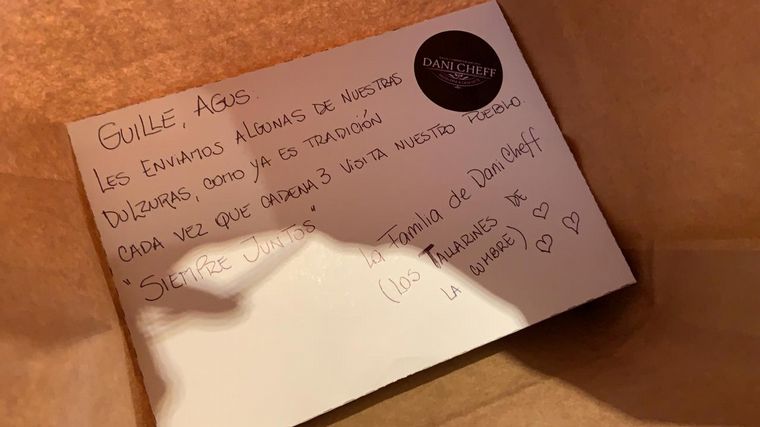 DANI CHEFF
GUILLE, AGUS.
LES ENVIAMOS ALGUNAS DE NUESTRAS
DULZURAS, COMO YA ES TRADICIÓN
CADA VEZ QUE CADENA 3 VISITA NUESTRO PUEBLO.
"SIEMPRE JUNTOS"
La Familia de Dani Cheff
(LOS TALLARINES DE
LA CUMBRE)